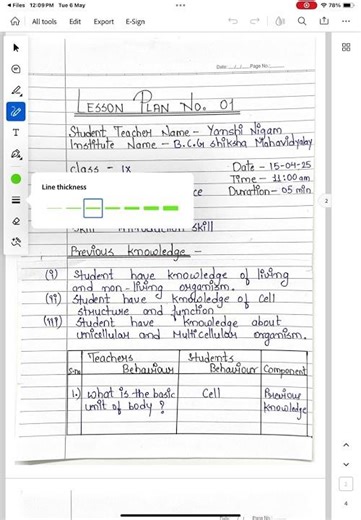 Files 12:09 PM Tue 6 May 78%
All tools Edit Export E-Sign
Date: __/__/__ Page No:
LESSON PLAN NO. 01
Student Teacher Name - Yanshi Nigam
Institute Name - B.C.G Shiksha Mahavidyalay
class - IX Date - 15-04-25
Time - 11:00 am
Line thickness
ce Duration - 05 min
skill
Previous knowledge -
(i) Student have knowledge of living
and non-living organism.
(ii) Student have knowledge of cell
structure and function
(iii) Student have knowledge about
unicellular and Multicellular organism.
S.no Teachers Behaviour Students Behaviour Component
1.) what is the basic unit of body ? Cell Previous knowledge
2
4